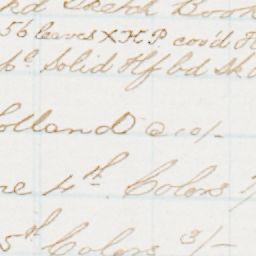 Sketch Book
56 leaves X H P cov'd
Solid Hf bd Sk
olland @ 10/-
re 4th Colors
5th Colors 3/-